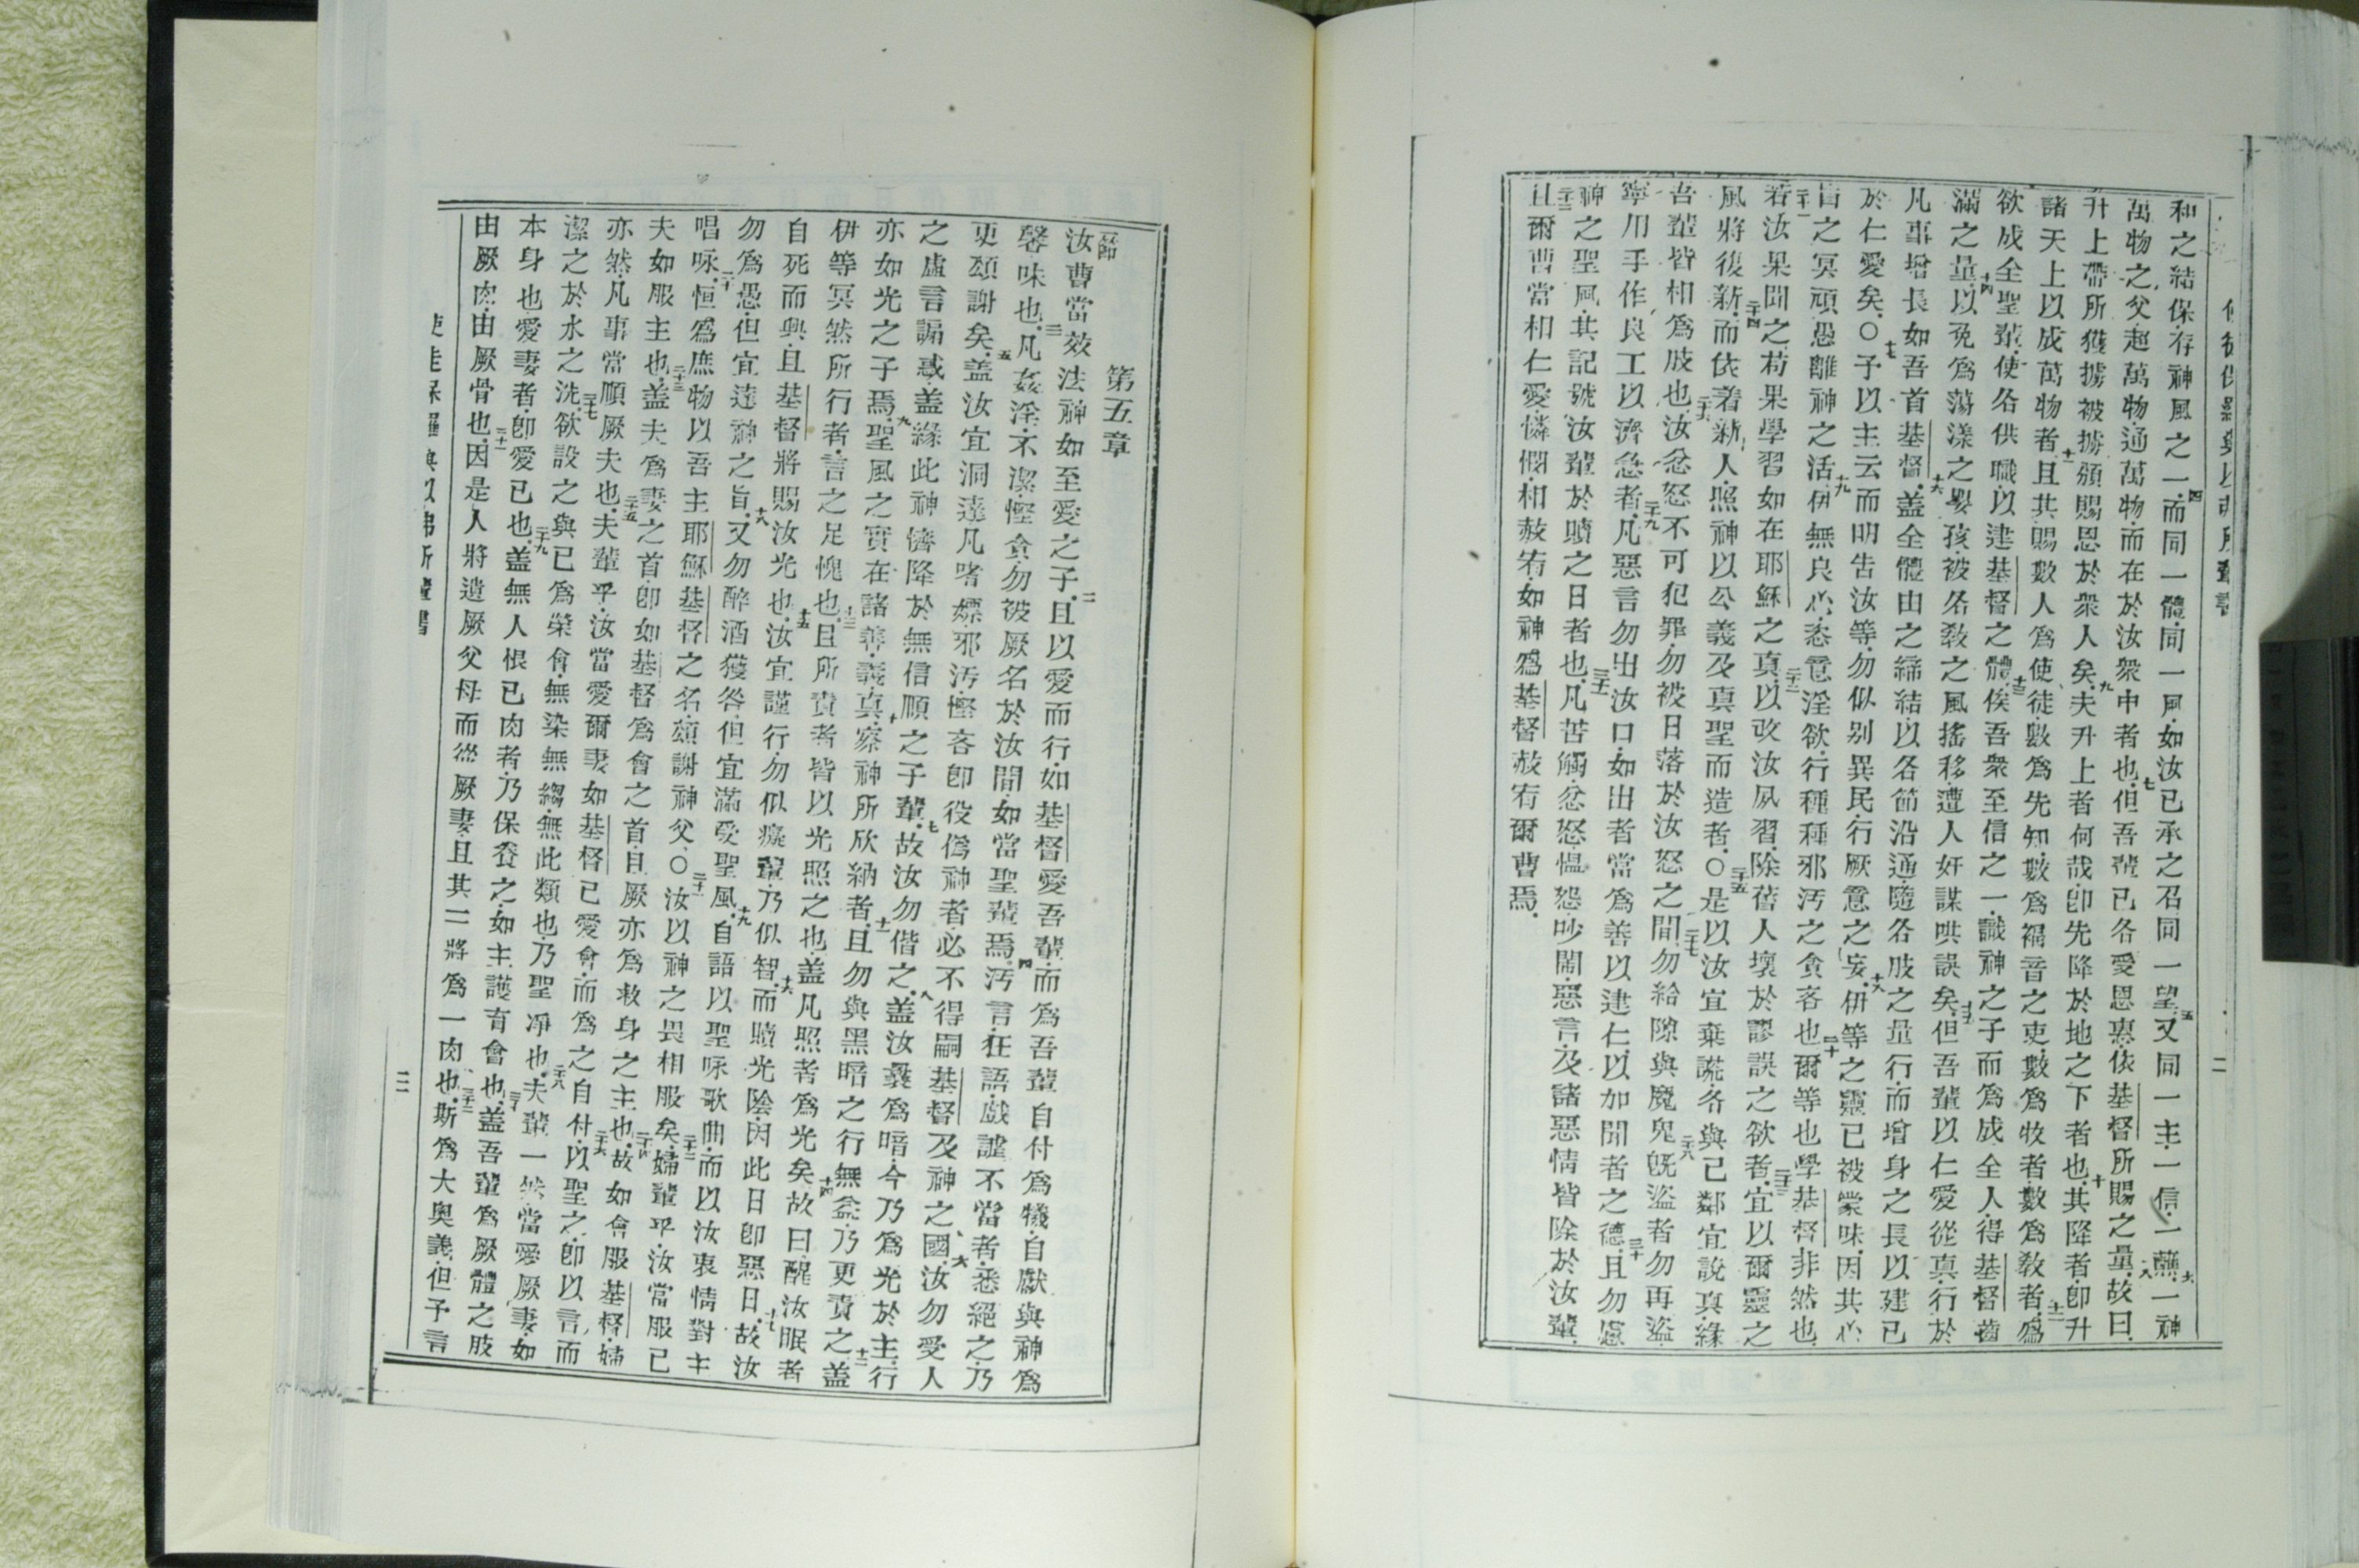 使徒保羅與以弗所輩書
二
和之結保存神風之一四而同一體同一風如汝已承之召同一望五又同一主一信一蘸六一神
萬物之父超萬物通萬物而在於汝衆中者也七但吾輩已各受恩惠依基督所賜之量八故曰
升上帶所獲擄被擄頒賜恩於衆人矣九夫升上者何哉卽先降於地之下者也十其降者卽升
諸天上以成萬物者十一且其賜數人爲使徒數爲先知數爲福音之吏數爲牧者數爲敎者十二爲
欲成全聖輩使各供職以建基督之體十三俟吾衆至信之一識神之子而爲成全人得基督齒
滿之量十四以免爲蕩漾之嬰孩被各敎之風搖移遭人奸謀哄誤矣十五但吾輩以仁愛從眞行於
凡事增長如吾首基督十六蓋全體由之締結以各節沿通隨各肢之量行而增身之長以建己
於仁愛矣〇十七予以主云而明告汝等勿似別異民行厥意之妄十八伊等之靈已被蒙昧因其心
盲之冥頑愚離神之活十九伊無良心恣意淫欲行種種邪汚之貪吝也二十爾等也學基督非然也
二十一若汝果聞之苟果學習如在耶穌之眞二十二以改汝夙習除舊人壞於謬誤之欲者二十三宜以爾靈之
風將復新二十四而依着新人照神以公義及眞聖而造者〇二十五是以汝宜棄謊各與己鄰宜說眞緣
吾輩皆相爲肢也二十六汝忿怒不可犯罪勿被日落於汝怒之間二十七勿給隙與魔鬼二十八旣盜者勿再盜
寧用手作良工以濟急者二十九凡惡言勿出汝口如出者當爲善以建仁以加聞者之德三十且勿慁
神之聖風其記號汝輩於贖之日者也三十一凡苦觸忿怒慍怨吵鬧惡言及諸惡情皆除於汝輩
三十二且爾曹當相仁愛憐憫相赦宥如神爲基督赦宥爾曹焉
第五章
一節汝曹當效法神如至愛之子二且以愛而行如基督愛吾輩而爲吾輩自付爲犧自獻與神爲
馨味也三凡姦淫不潔慳貪勿被厥名於汝間如當聖輩焉四汚言狂語戲謔不當者悉絕之乃
更頌謝矣五蓋汝宜洞達凡嗜嫖邪汚慳吝卽役僞神者必不得嗣基督及神之國六汝勿受人
之虛言謆惑蓋緣此神儕降於無信順之子輩七故汝勿偕之八蓋汝曩爲暗今乃爲光於主行
亦如光之子焉九聖風之實在諸善義眞十察神所欣納者十一且勿與黑暗之行無益乃更責之十二蓋
伊等冥然所行者言之足愧也十三且所責者皆以光照之也蓋凡照者爲光矣十四故曰醒汝眠者
自死而興且基督將賜汝光也十五汝宜謹行勿似癡輩乃似智十六而贖光陰因此日卽惡日十七故汝
勿爲愚但宜達神之旨十八又勿醉酒獲咎但宜滿受聖風十九自語以聖咏歌曲而以汝衷情對主
唱咏二十恒爲庶物以吾主耶穌基督之名頌謝神父〇二十一汝以神之畏相服矣二十二婦輩乎汝當服己
夫如服主也二十三蓋夫爲妻之首卽如基督爲會之首且厥亦爲救身之主也二十四故如會服基督婦
亦然凡事當順厥夫也二十五夫輩乎汝當愛爾妻如基督己愛會而爲之自付二十六以聖之卽以言而
潔之於水之洗二十七欲設之與己爲榮會無染無縐無此類也乃聖淨也二十八夫輩一然當愛厥妻如
本身也愛妻者卽愛己也二十九蓋無人恨己肉者乃保養之如主護育會也三十蓋吾輩爲厥體之肢
由厥肉由厥骨也三十一因是人將遺厥父母而從厥妻且其二將爲一肉也三十二斯爲大奧義但予言
使徒保羅與以弗所輩書
三